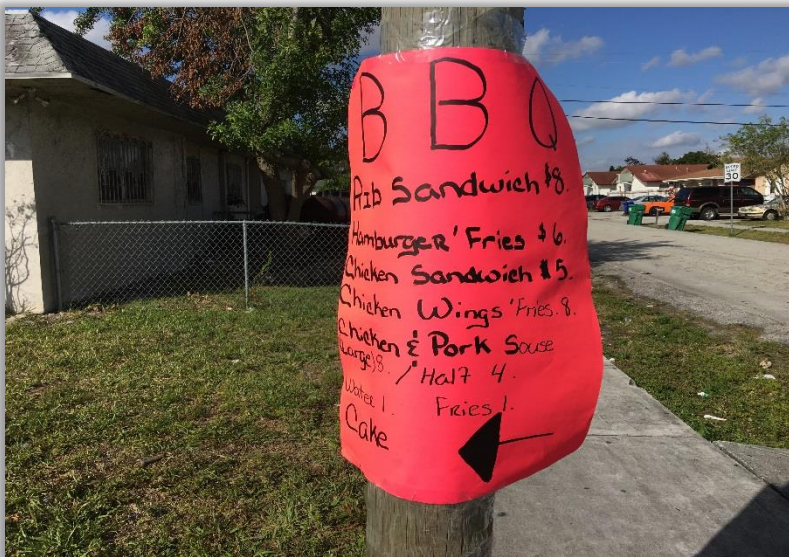 BBQ
Rib Sandwich $8.
Hamburger' Fries $6.
Chicken Sandwich $5.
Chicken Wings 'Fries. 8.
Chicken & Pork Souse
(Large) 8. / Half 4.
Water 1. Fries 1.
Cake
30